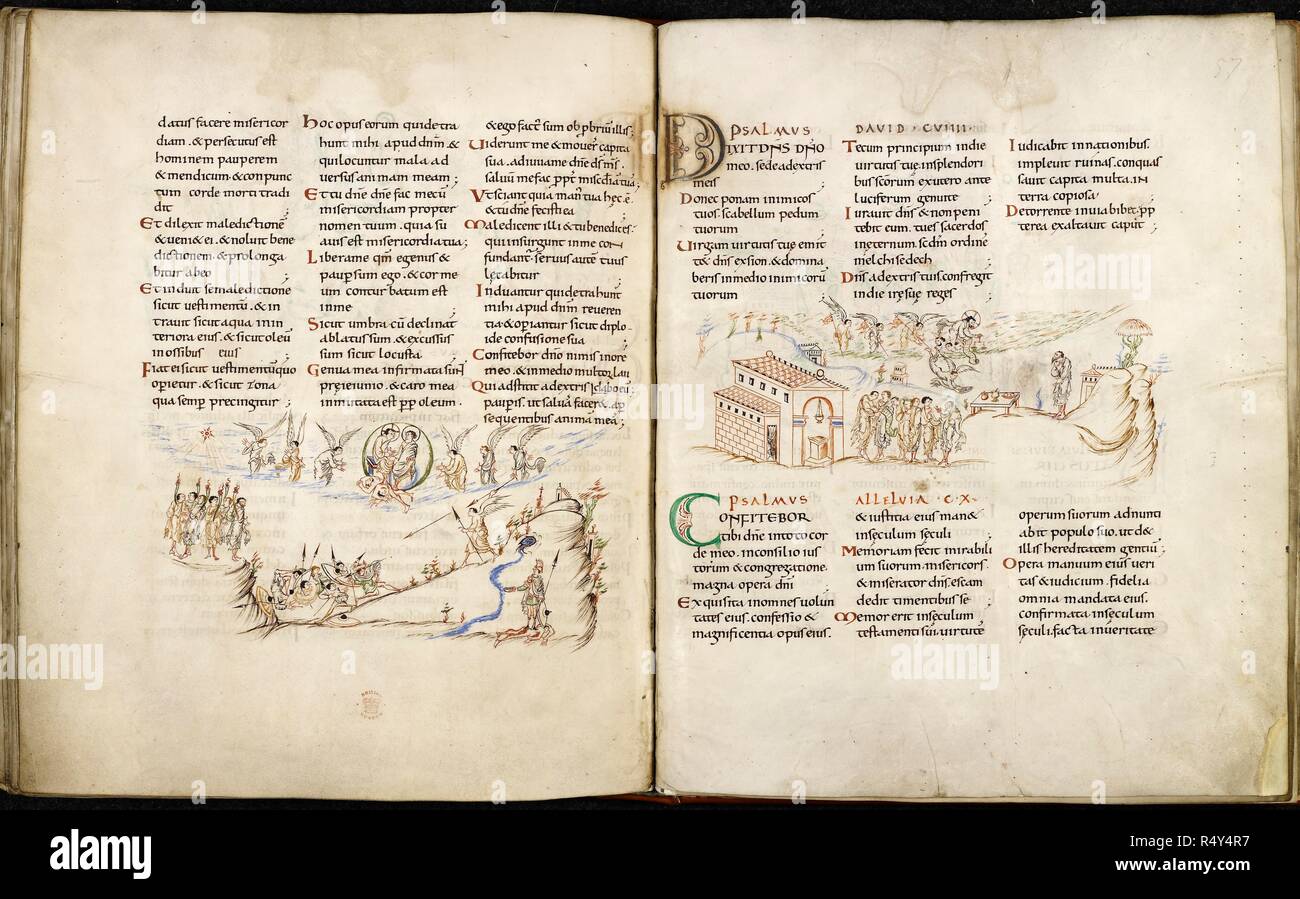 datus facere misericor
diam. & persecutus est
hominem pauperem
& mendicum. & conpunc
tum corde morti tradi
dit
Et dilexit maledictione
& veni& ei. & noluit bene
dictionem. & prolonga
bitur abeo
Et induit se maledictione
sicut vestimentu. & in
travit sicut aqua inin
teriora eius. & sicut oleu
in ossibus eius
Fiat ei sicut vestimentu quo
operietur. & sicut zona
qua semp precingitur
hoc opus eorum qui detra
hunt mihi apud dnm. &
qui locuntur mala ad
versus animam meam
Et tu dne dne fac mecu
misericordiam propter
nomen tuum. quia su
avis est misericordia tua
Libera me qm egenus &
paup sum ego. & cor me
um conturbatum est
in me
Sicut umbra cu declinat
ablatus sum. & excussus
sum sicut locusta
Genua mea infirmata sunt
pre ieiunio. & caro mea
inmutata est pp oleum
& ego fact sum obpbriu illis
Viderunt me & mover capita
sua. adiuva me ds ms
salvu me fac ppt miscdia tua
Vt sciant quia man tua hec. e
& tu dne fecisti ea
Maledicent illi & tu benedices.
qui insurgunt in me con
fundant. servus aute tuus
letabitur
Induantur qui detrahunt
mihi apud dnm reveren
tia. & operiantur sicut diplo
ide confusione sua
Confitebor dno nimis in ore
meo. & in medio multor lau
Qui adstitit a dextris
paupis. ut salva facer& a p
sequentibus anima mea
PSALMUS DAVID CVIIII
DIXIT DNS DNO
meo. sede a dextris
meis
Donec ponam inimicos
tuos. scabellum pedum
tuorum
Virgam virtutis tue emit
t& dns ex sion. & domina
beris in medio inimicoru
tuorum
Tecum principium in die
virtutis tue. in splendori
bus scorum ex utero ante
luciferum genui te
Iuravit dns & non peni
tebit eum. tu es sacerdos
in eternum. sedm ordine
melchisedech
Dns a dextris tuis. confregit
in die ire sue reges
Iudicabit in nationibus.
implevit ruinas. conquas
savit capita multa. IN
terra copiosa
De torrente in via bibet. pp
terea exaltavit caput
57
PSALMUS ALLELUIA C.X.
CONFITEBOR
tibi dne in toto cor
de meo. in consilio ius
torum & congregatione.
magna opera dni
Exquisita in omnes volun
tates eius. confessio &
magnificentia opus eius.
& iustitia eius man&
in seculum seculi
Memoriam fecit mirabili
um suorum. misericors.
& miserator dns. escam
dedit timentibus se
Memor erit in seculum
testamenti sui. virtute
operum suorum adnunti
abit populo suo. ut d&
illis hereditatem gentiu
Opera manuum eius veri
tas & iudicium. fidelia
omnia mandata eius.
confirmata in seculum
seculi. facta in veritate
alamy
Image ID: R4Y4R7
www.alamy.com